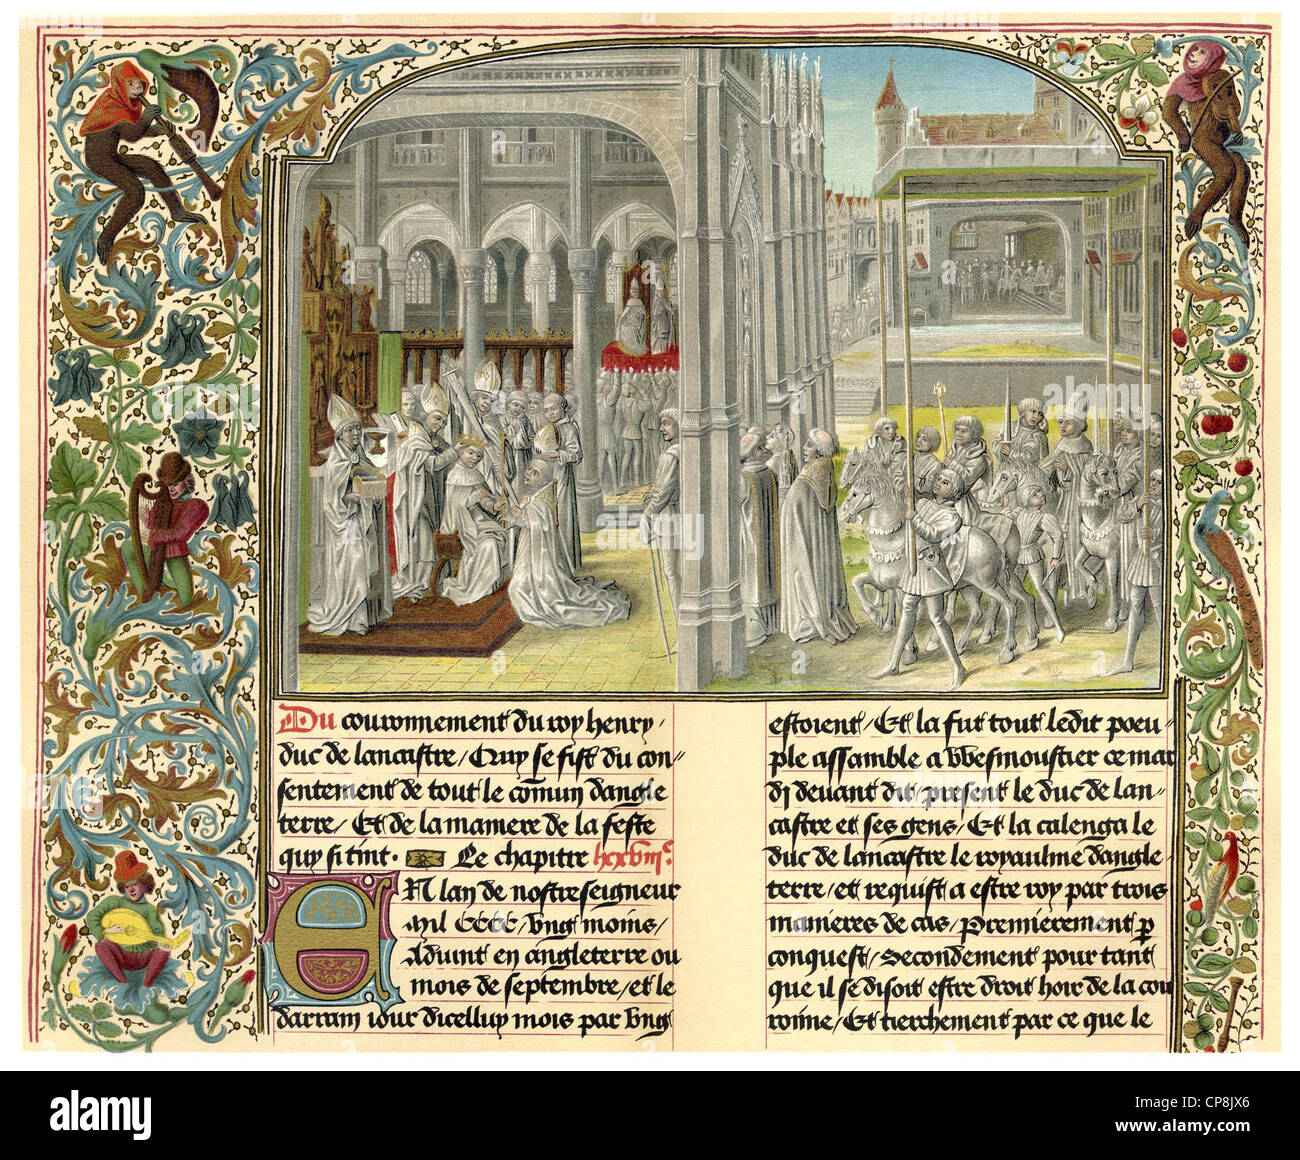 Du couronnement du roy henry /
duc de lancastre / Quy se fist du con=
sentement de tout le comun dangle
terre / Et de la maniere de la feste
quy si tint. Le chapitre lxxviii.e
EN lan de nostre seigneur
mil CCCC / vng moins /
Aduint en angleterre ou
mois de septembre / et le
darrain iour dicelluy mois par vng
estoient / Et la fut tout ledit peeu=
ple assamble a vvesmoustier ce mar
di deuant dit / present le duc de lan=
castre et ses gens / Et la calenga le
duc de lancastre le royaulme dangle
terre / et requist a estre roy par trois
manieres de cas / Premierement p
conquest / Secondement pour tant
que il se disoit estre droit hoir de la cou
ronne / Et tierchement par ce que le
alamy
Image ID: CP8JX6
www.alamy.com